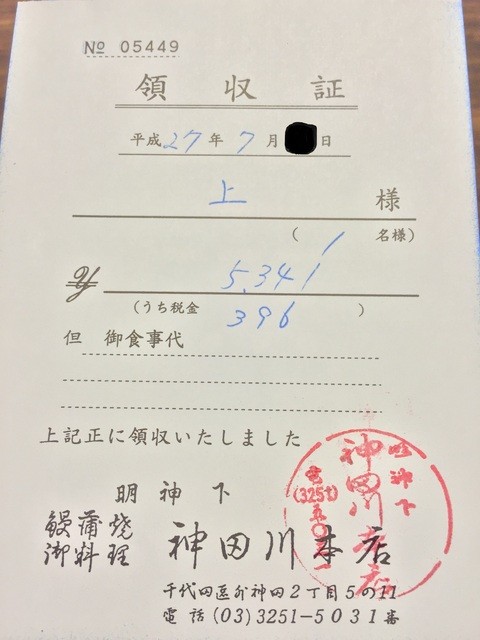 No 05449
領収証
平成27年7月 日
上 様
(1 名様)
5,341
(うち税金 396 )
但 御食事代
上記正に領収いたしました
明神下
鰻蒲焼
御料理 神田川本店
千代田区外神田2丁目5の11
電話(03)3251-5031番
明神下
神田川本店
電(3251)五〇三一